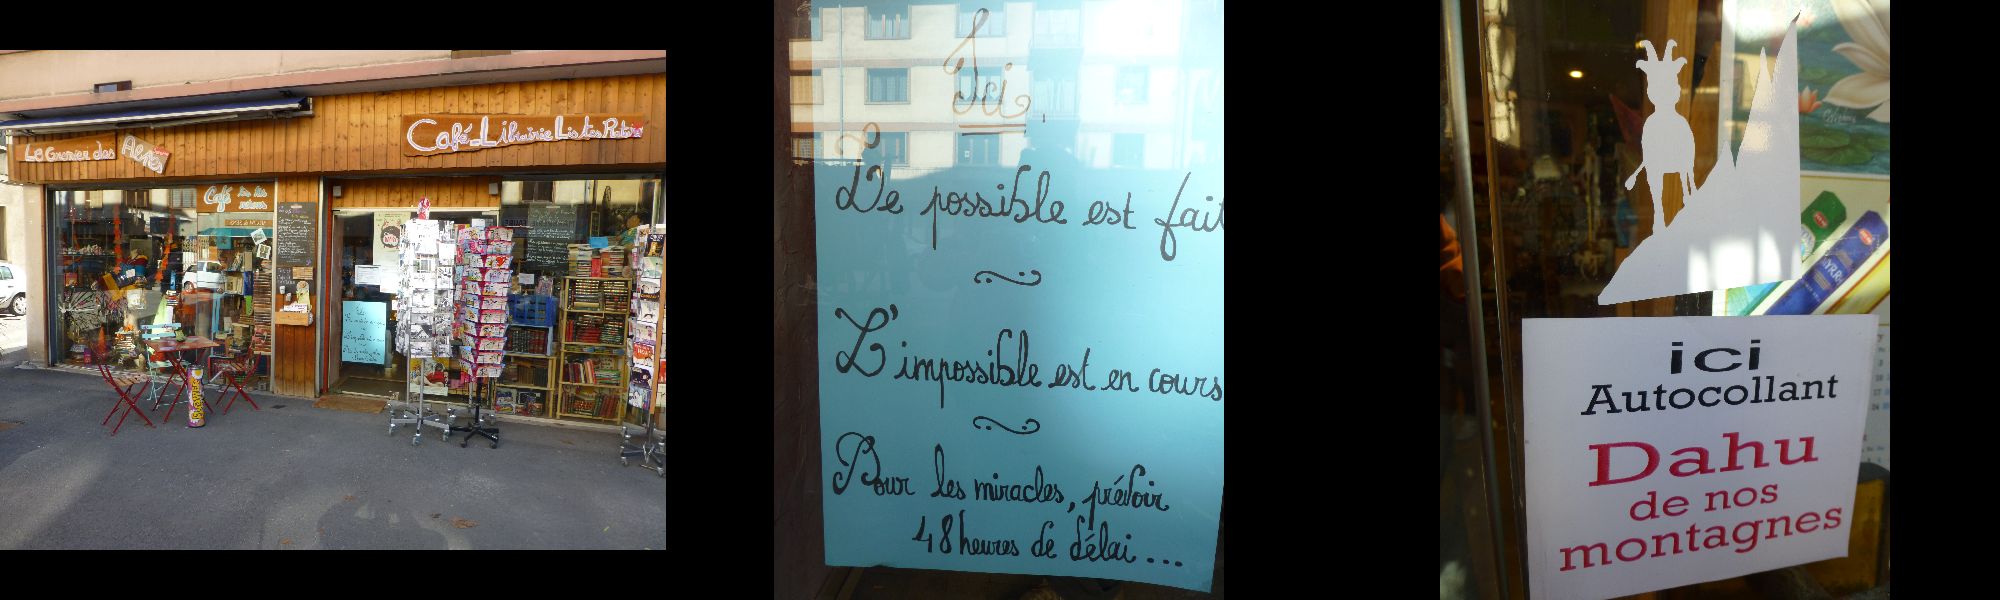 Le Grenier des Alpes
Café-Librairie Lis tes Ratures
Café
Ici
Le possible est fait
L'impossible est en cours
Pour les miracles, prévoir
48 heures de délai...
ici
Autocollant
Dahu
de nos
montagnes